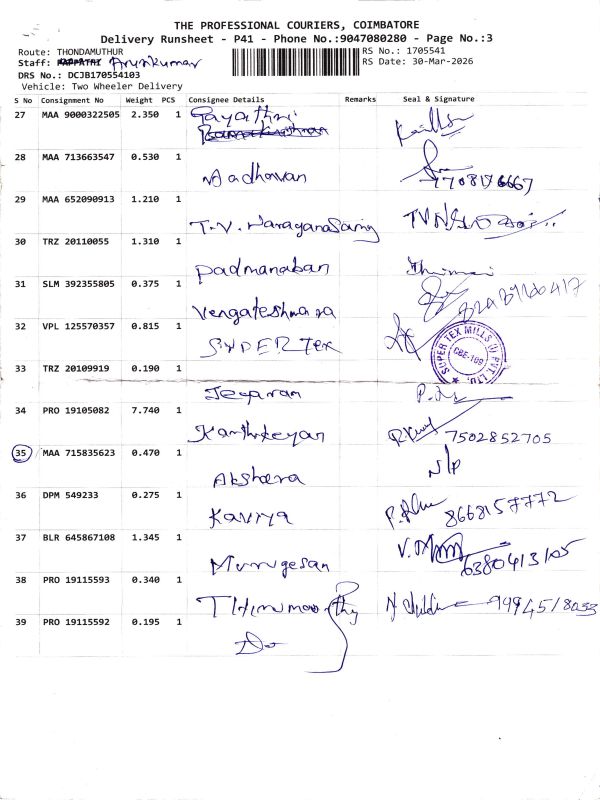 THE PROFESSIONAL COURIERS, COIMBATORE
Delivery Runsheet - P41 - Phone No.:9047080280 - Page No.:3
Route: THONDAMUTHUR
RS No.: 1705541
Staff: Arunkumar
RS Date: 30-Mar-2026
DRS No.: DCJB170554103
Vehicle: Two Wheeler Delivery
S No Consignment No Weight PCS Consignee Details Remarks Seal & Signature
27 MAA 9000322505 2.350 1 Gayathri
28 MAA 713663547 0.530 1
Aadhavan
29 MAA 652090913 1.210 1
T.V. Narayanasamy
30 TRZ 20110055 1.310 1
Padmanaban
31 SLM 392355805 0.375 1
Vengateshwara
32 VPL 125570357 0.815 1
SUPER Tex
SUPER TEX MILLS (I) PVT. LTD.
CBE-109
33 TRZ 20109919 0.190 1
Jeyaram
34 PRO 19105082 7.740 1
Karthikeyan 7502852705
35 MAA 715835623 0.470 1
Akshara N/P
36 DPM 549233 0.275 1
Kavya 8668157772
37 BLR 645867108 1.345 1
Murugesan 6380413105
38 PRO 19115593 0.340 1
Thirumoorthy 9994518033
39 PRO 19115592 0.195 1
Do